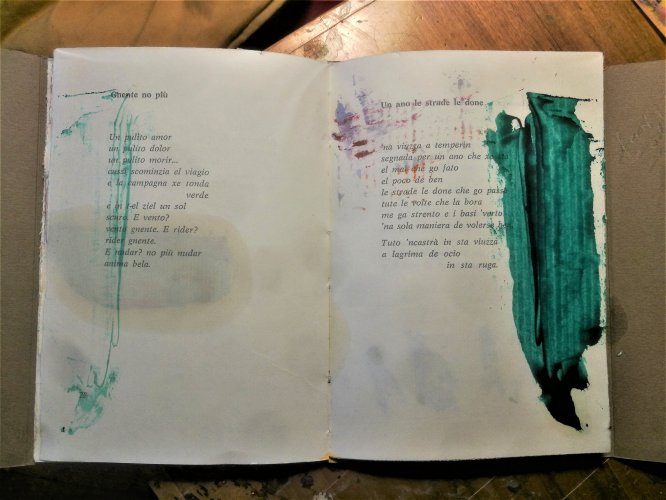 Gnente no più
Un pulito amor
un pulito dolor
un pulito morir...
cussì scominzia el viagio
e la campagna xe tonda
verde
e pi t-el ziel un sol
scuro. E vento?
vento gnente. E rider?
rider gnente.
E nudar? no più nudar
anima bela.
22
Un ano le strade le done
'na viuzza a temperin
segnada per un ano che xe
el mal che go fato
el poco de ben
le strade le done che go
tute le volte che la bora
me ga strento e i basi 'verto
'na sola maniera de volerse
Tuto 'ncastrà in sta viuzza
a lagrima de ocio
in sta ruga.